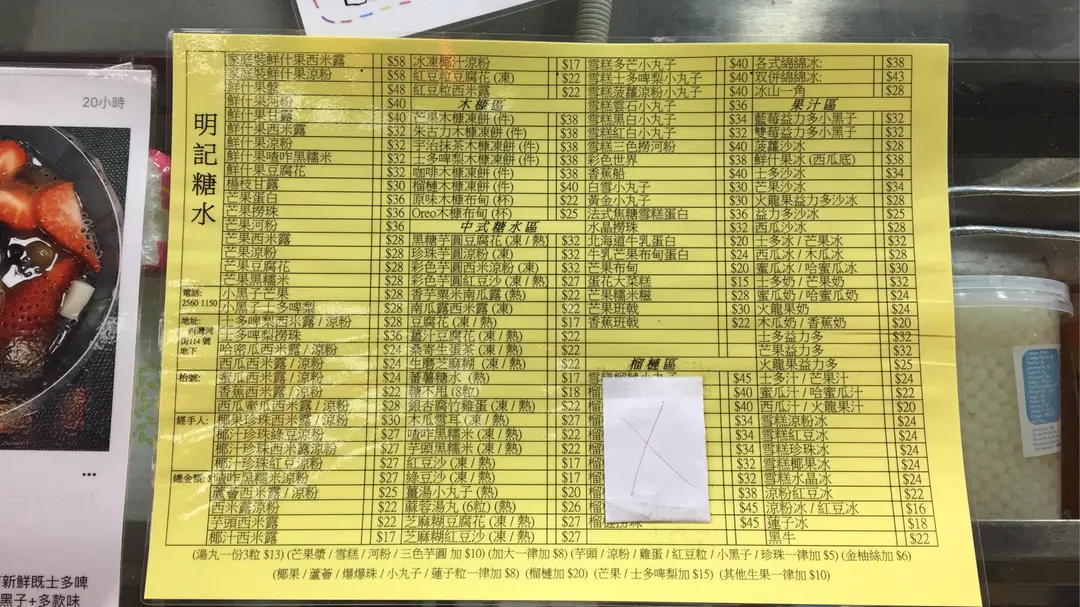 20小時
明記糖水
電話:
2560 1150
地址:
西灣河
街114號
地下
枱號:
經手人:
總金額: $
家庭裝鮮什果西米露 $58
家庭裝鮮什果涼粉 $58
鮮什果盤 $48
鮮什果河粉 $40
鮮什果甘露 $40
鮮什果西米露 $32
鮮什果涼粉 $32
鮮什果喳咋黑糯米 $32
鮮什果豆腐花 $32
楊枝甘露 $30
芒果蛋白 $36
芒果撈珠 $36
芒果河粉 $36
芒果西米露 $28
芒果涼粉 $28
芒果豆腐花 $28
芒果黑糯米 $28
小黑子芒果 $28
小黑子士多啤梨 $28
士多啤梨西米露 / 涼粉 $28
士多啤梨撈珠 $36
哈密瓜西米露 / 涼粉 $24
西瓜西米露 / 涼粉 $24
蜜瓜西米露 / 涼粉 $24
香蕉西米露 / 涼粉 $22
西瓜蜜瓜西米露 / 涼粉 $28
椰果珍珠西米露 / 涼粉 $30
椰汁珍珠綠豆涼粉 $27
椰汁珍珠西米露涼粉 $27
椰汁珍珠紅豆涼粉 $27
喳咋黑糯米涼粉 $27
蘆薈西米露 / 涼粉 $25
西米露涼粉 $22
芋頭西米露 $22
椰汁西米露 $17
冰凍椰汁涼粉 $17
紅豆粒豆腐花 (凍) $22
紅豆粒西米露 $22
木糠區
芒果木糠凍餅 (件) $38
朱古力木糠凍餅 (件) $38
宇治抹茶木糠凍餅 (件) $38
士多啤梨木糠凍餅 (件) $38
咖啡木糠凍餅 (件) $38
榴槤木糠凍餅 (件) $40
原味木糠布甸 (杯) $22
Oreo木糠布甸 (杯) $25
中式糖水區
黑糖芋圓豆腐花 (凍 / 熱) $32
珍珠芋圓涼粉 (凍) $32
彩色芋圓西米涼粉 (凍) $32
彩色芋圓紅豆沙 (凍 / 熱) $27
香芋粟米南瓜露 (熱) $28
南瓜露西米 (凍) $22
豆腐花 (凍 / 熱) $17
薑汁豆腐花 (凍 / 熱) $22
桑寄生蛋茶 (凍 / 熱) $22
生磨芝麻糊 (凍 / 熱) $22
蕃薯糖水 (熱) $17
糖不甩 (8粒) $18
銀杏腐竹雞蛋 (凍 / 熱) $22
木瓜雪耳 (凍 / 熱) $22
喳咋黑糯米 (凍 / 熱) $22
芋頭黑糯米 (凍 / 熱) $22
紅豆沙 (凍 / 熱) $17
綠豆沙 (凍 / 熱) $17
薑湯小丸子 (熱) $20
麻蓉湯丸 (6粒) (熱) $26
芝麻糊豆腐花 (凍 / 熱) $27
芝麻糊紅豆沙 (凍 / 熱) $27
雪糕多芒小丸子 $40
雪糕士多啤梨小丸子 $40
雪糕菠蘿涼粉小丸子 $40
雪糕雲石小丸子 $36
雪糕黑白小丸子 $34
雪糕紅白小丸子 $32
雪糕三色撈河粉 $40
彩色世界 $38
香蕉船 $40
白雪小丸子 $30
黃金小丸子 $30
法式焦糖雪糕蛋白 $36
水晶撈珠 $32
北海道牛乳蛋白 $20
牛乳芒果布甸蛋白 $24
芒果布甸 $20
蛋花大菜糕 $15
芒果糯米糍 $22
芒果班戟 $30
香蕉班戟 $22
榴槤區
雪糕榴槤小丸子 $45
榴 $40
榴 $40
榴 $34
榴 $34
榴 $34
榴 $32
榴 $38
榴 $45
榴槤撈珠 $45
各式綿綿冰: $38
双併綿綿冰: $43
冰山一角 $28
果汁區
藍莓益力多小黑子 $32
雙莓益力多小黑子 $32
菠蘿沙冰 $28
鮮什果冰 (西瓜底) $38
士多沙冰 $34
芒果沙冰 $34
火龍果益力多沙冰 $28
益力多沙冰 $25
西瓜沙冰 $28
士多冰 / 芒果冰 $32
西瓜冰 / 木瓜冰 $28
蜜瓜冰 / 哈蜜瓜冰 $30
士多奶 / 芒果奶 $32
蜜瓜奶 / 哈蜜瓜奶 $24
火龍果奶 $24
木瓜奶 / 香蕉奶 $20
士多益力多 $32
芒果益力多 $32
火龍果益力多 $25
士多汁 / 芒果汁 $24
蜜瓜汁 / 哈蜜瓜汁 $22
西瓜汁 / 火龍果汁 $20
雪糕涼粉冰 $24
雪糕紅豆冰 $24
雪糕珍珠冰 $24
雪糕椰果冰 $24
雪糕水晶冰 $24
涼粉紅豆冰 $22
涼粉冰 / 紅豆冰 $16
蓮子冰 $18
黑牛 $22
(湯丸一份3粒 $13) (芒果漿 / 雪糕 / 河粉 / 三色芋圓 加 $10) (加大一律加 $8) (芋頭 / 涼粉 / 雞蛋 / 紅豆粒 / 小黑子 / 珍珠一律加 $5) (金柚絲加 $6)
(椰果 / 蘆薈 / 爆爆珠 / 小丸子 / 蓮子粒一律加 $8) (榴槤加 $20) (芒果 / 士多啤梨加 $15) (其他生果一律加 $10)
新鮮既士多啤
黑子+多款味